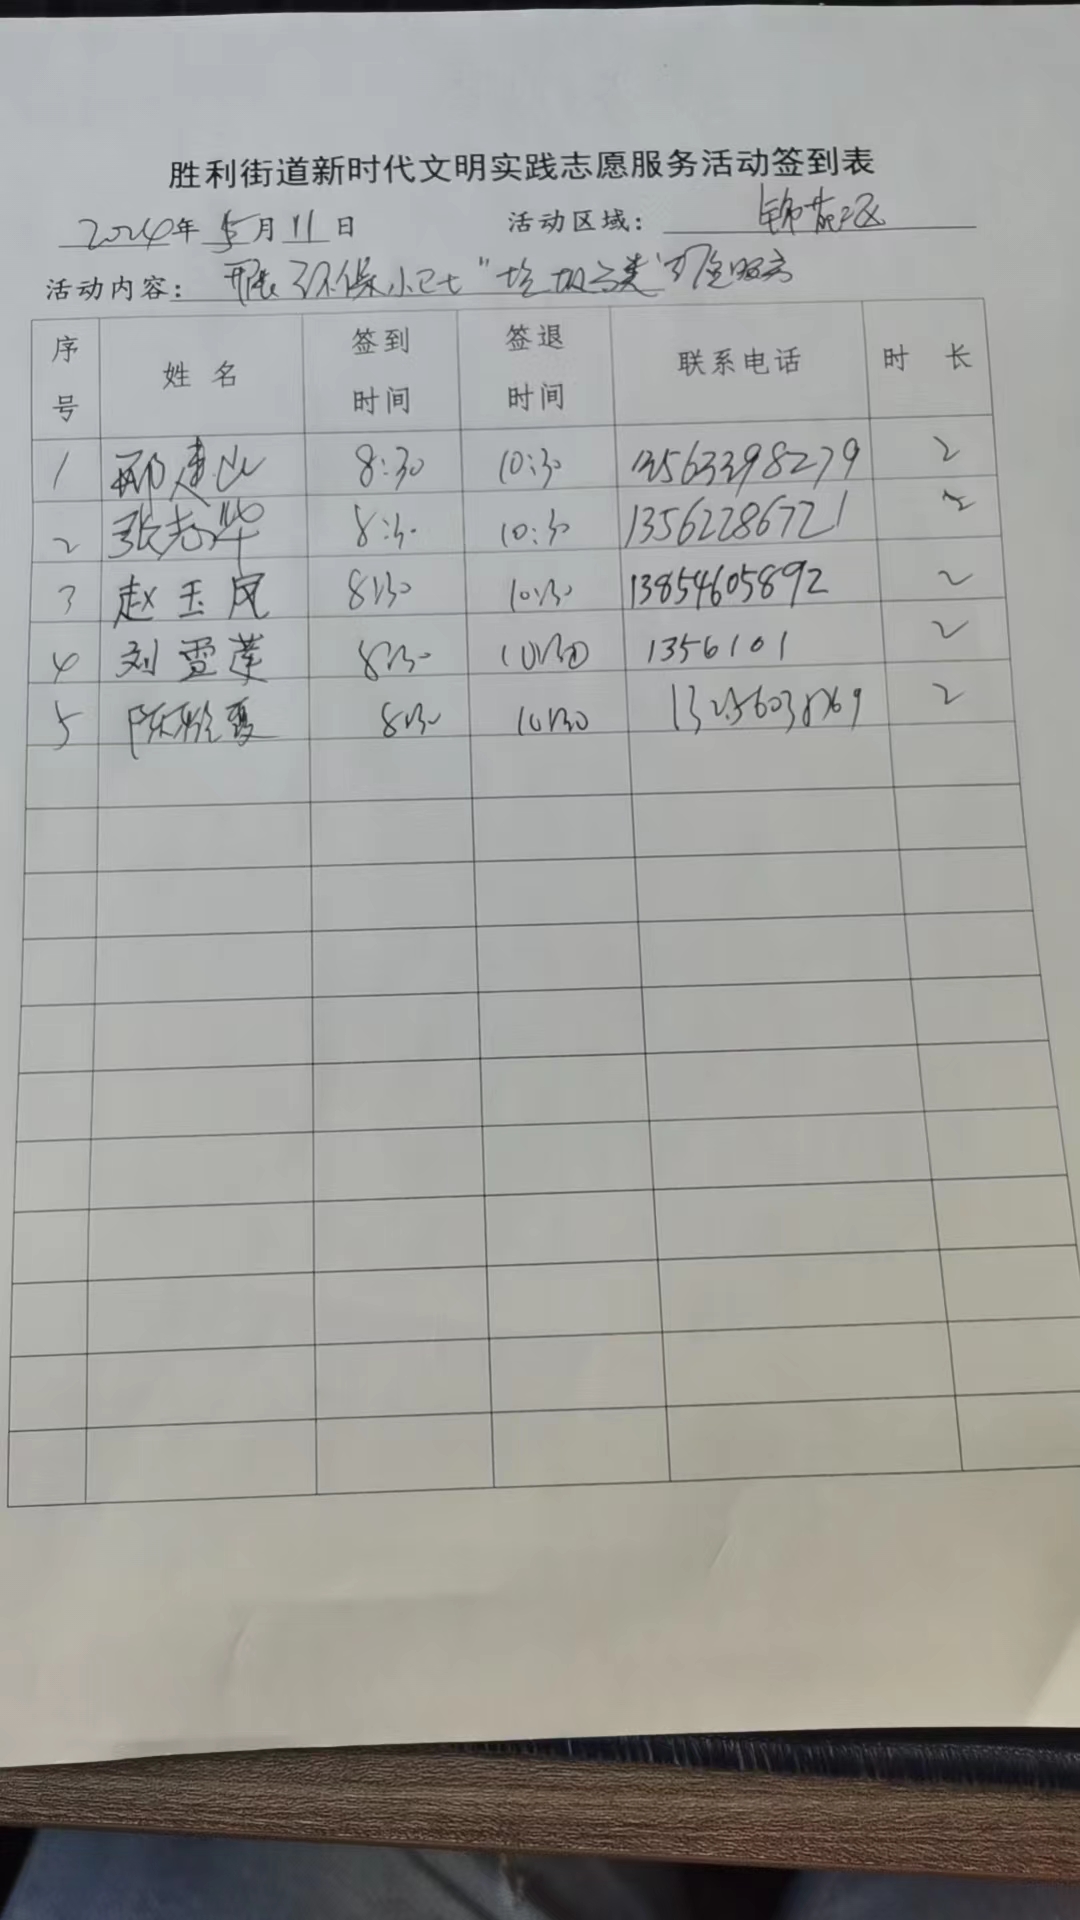 胜利街道新时代文明实践志愿服务活动签到表
2024年 5月 11日 活动区域：
活动内容：开展环保小卫士“垃圾分类”志愿服务
序号 姓名 签到时间 签退时间 联系电话 时长
1 邢建山 8:30 10:30 13563398279 2
2 张志华 8:30 10:30 13562286721 2
3 赵玉凤 8:30 10:30 13854605892 2
4 刘雪莲 8:30 10:30 1356101 2
5 陈 8:30 10:30 2